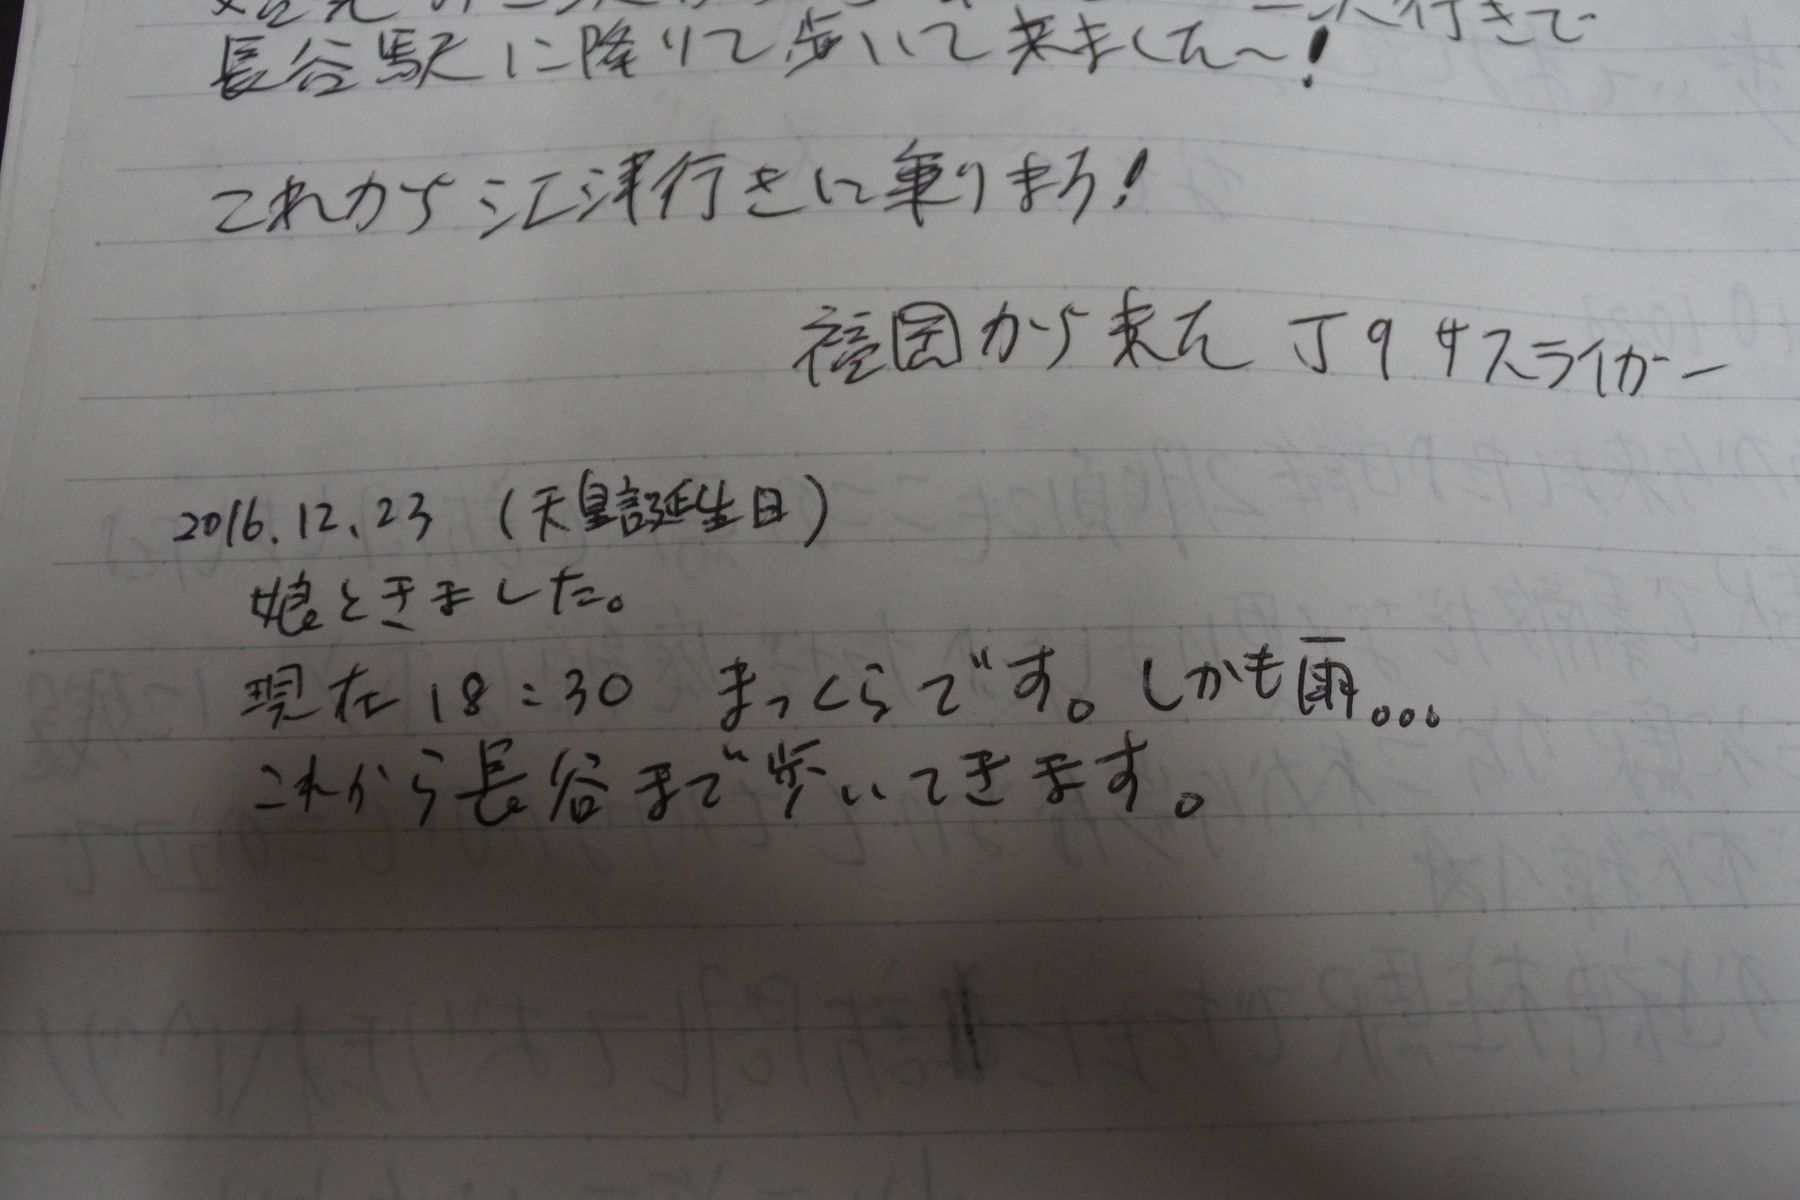 行きで
長谷駅に降りて歩いて来ました～！
これから江津行きに乗りまろ！
福岡から来た J9サスライガー
2016.12.23 （天皇誕生日）
娘ときました。
現在18:30 まっくらです。しかも雨。。。
これから長谷まで歩いてきます。